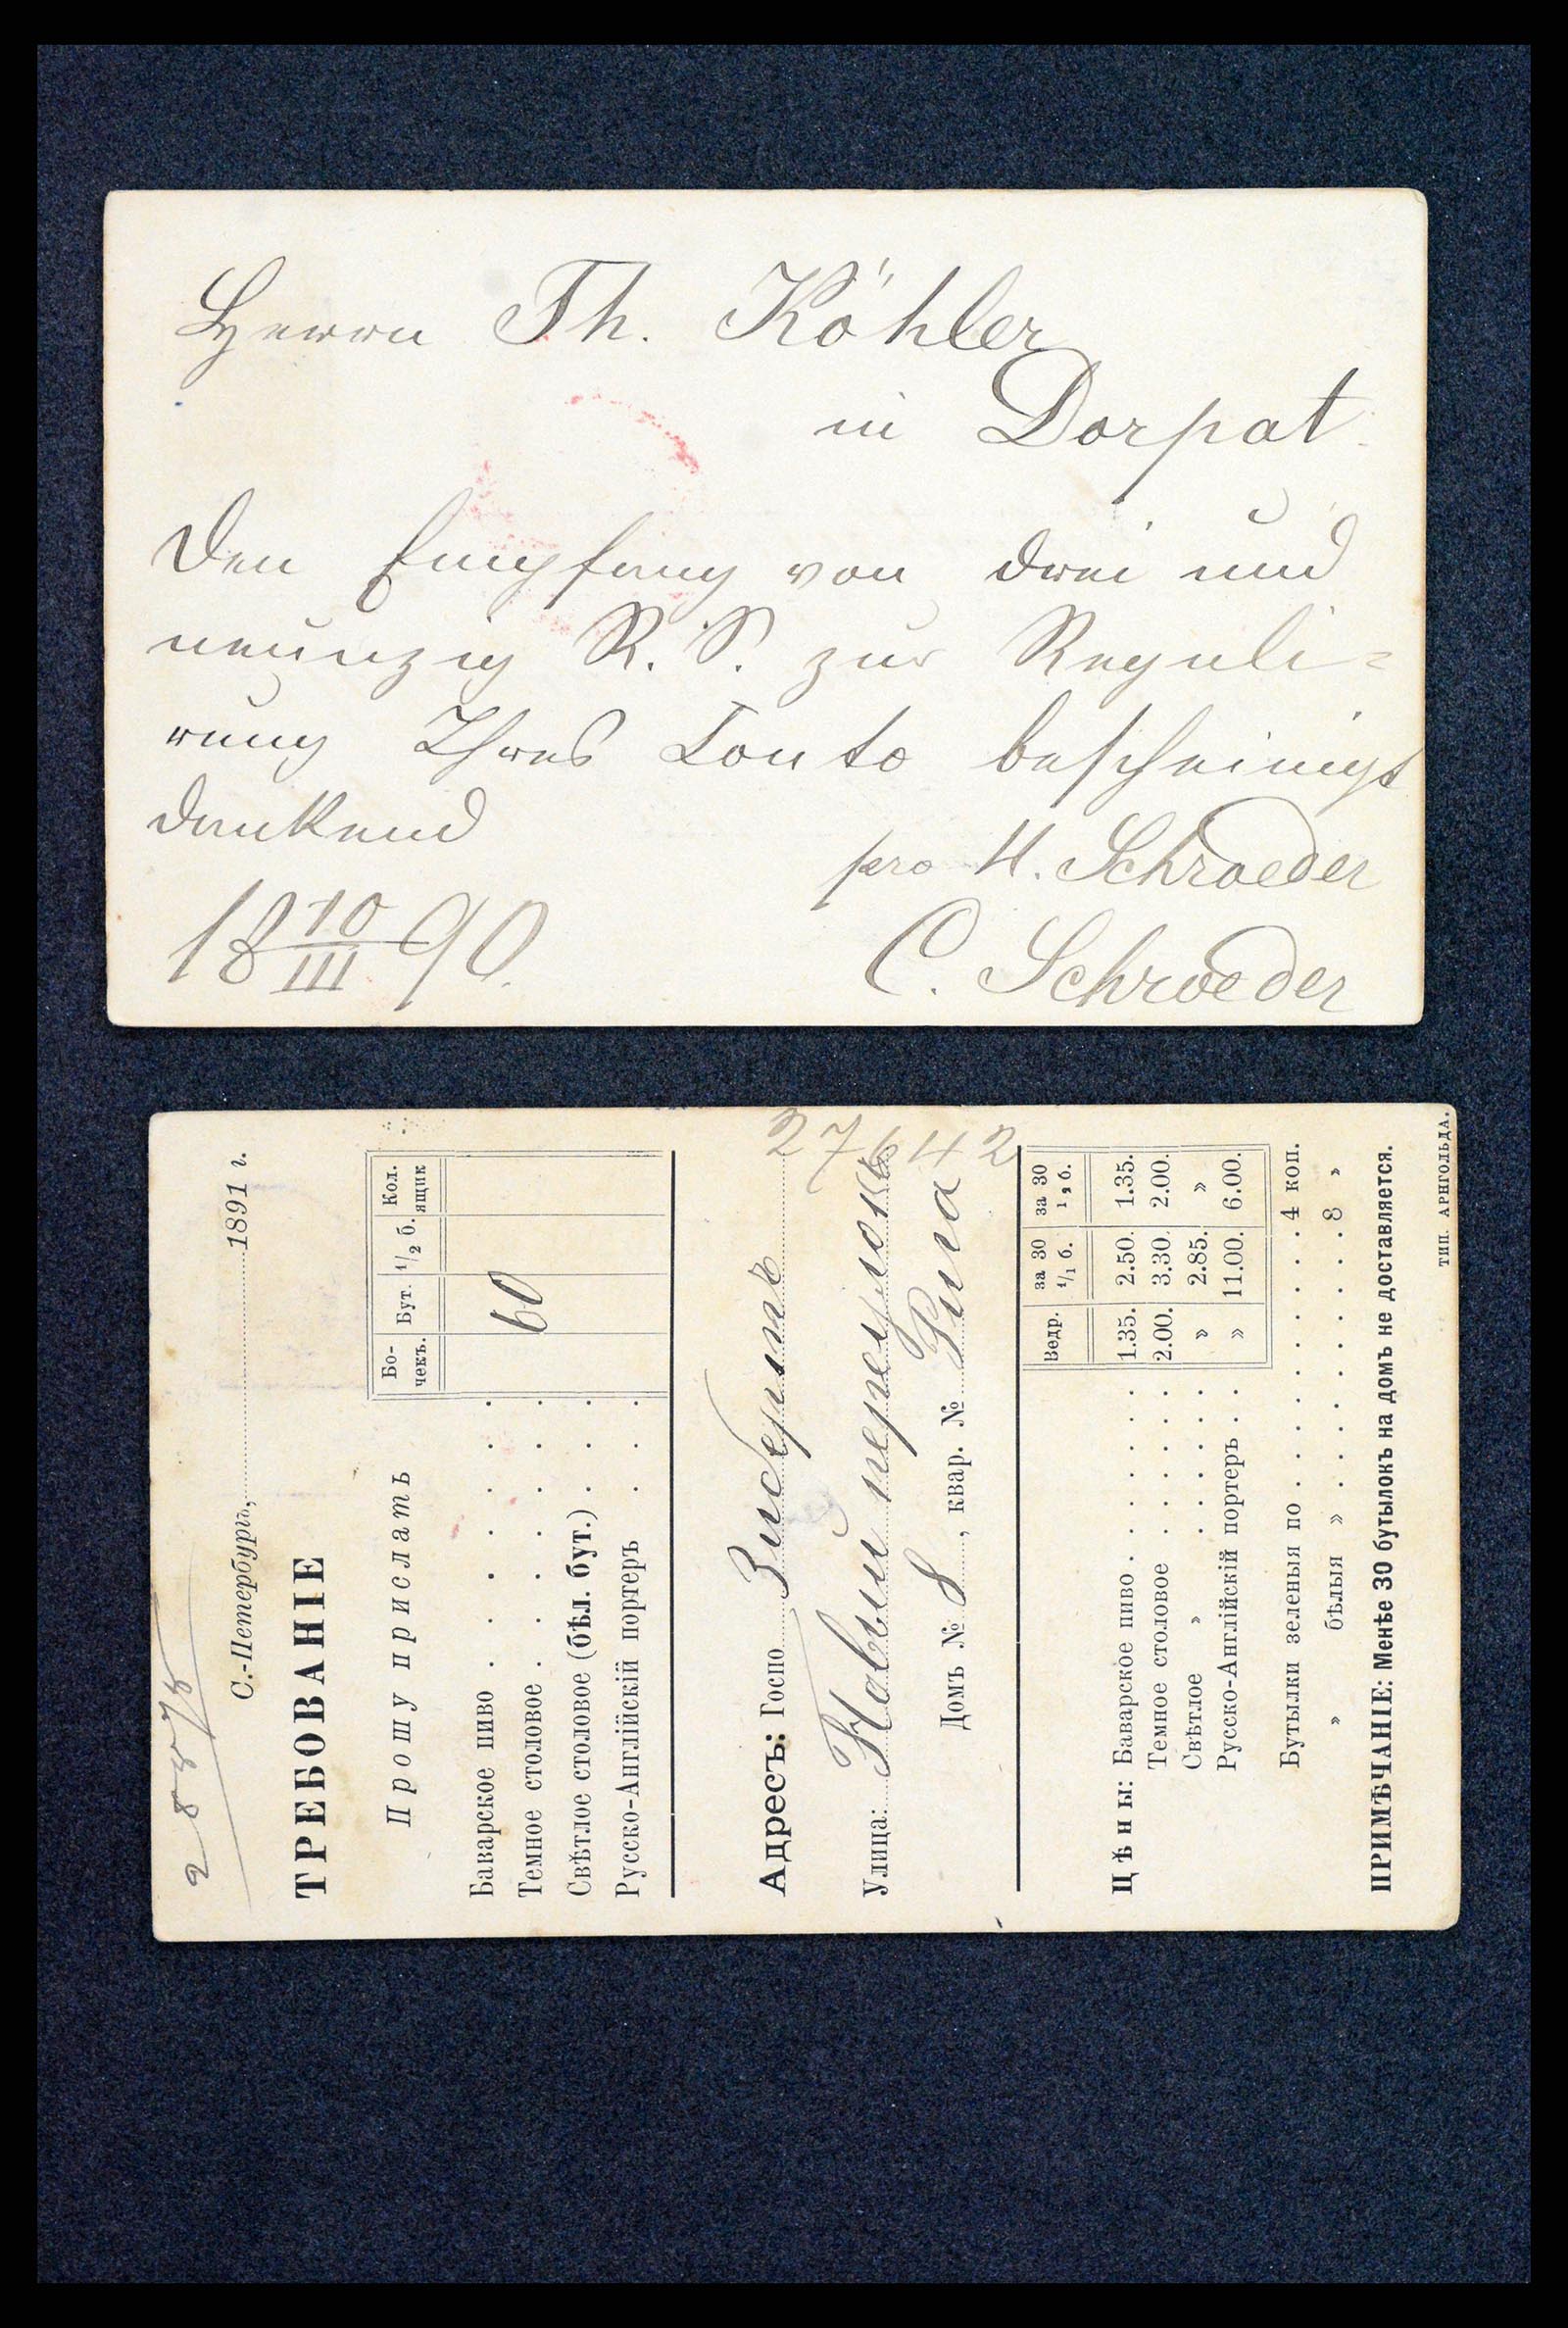 Herrn Th. Köhler
in Dorpat
Den Empfang von drei und
neunzig R. S. zur Reguli=
rung Ihres Conto bescheinigt
dankend
pro H. Schroeder
18 10/III 90.
C. Schroeder
С.-Петербургъ, 1891 г.
ТРЕБОВАНІЕ
Прошу прислать
Бо-чекъ. Бут. 1/2 б. Кол. ящик
Баварское пиво
Темное столовое 60
Свѣтлое столовое (бѣл. бут.)
Русско-Англійскій портеръ
27642
Адресъ: Госпо Зибертъ
Улица: Новый переулокъ
Домъ № 8, квар. №
Ведр. за 30 1/1 б. за 30 1/2 б.
Цѣны: Баварское пиво 1.35. 2.50. 1.35.
Темное столовое 2.00. 3.30. 2.00.
Свѣтлое » » 2.85. »
Русско-Англійскій портеръ » 11.00. 6.00.
Бутылки зеленыя по 4 коп.
» бѣлыя » 8 »
ПРИМѢЧАНІЕ: Менѣе 30 бутылокъ на домъ не доставляется.
ТИП. АРНГОЛЬДА.